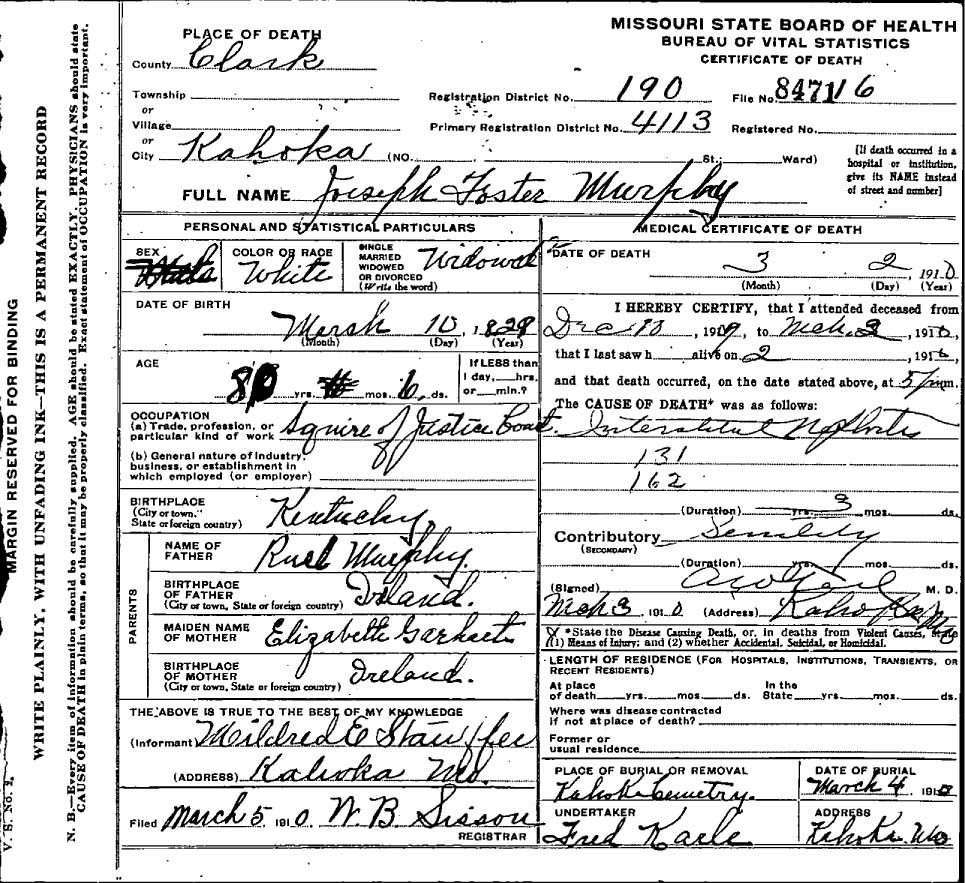 MISSOURI STATE BOARD OF HEALTH
BUREAU OF VITAL STATISTICS
CERTIFICATE OF DEATH
PLACE OF DEATH
County Clark
Township
or
Village
or
City Kahoka (NO. St.; Ward)
Registration District No. 190 File No. 8471
Primary Registration District No. 4113 Registered No.
[If death occurred in a
hospital or institution,
give its NAME instead
of street and number]
FULL NAME Joseph Foster Murphy
PERSONAL AND STATISTICAL PARTICULARS
SEX COLOR OR RACE White
SINGLE
MARRIED
WIDOWED
OR DIVORCED
(Write the word) Widowed
DATE OF BIRTH
March 10, 1829
(Month) (Day) (Year)
AGE
80 yrs. mos. ds.
If LESS than
1 day, hrs.
or min.?
OCCUPATION
(a) Trade, profession, or
particular kind of work Squire of Justice Court
(b) General nature of industry,
business, or establishment in
which employed (or employer)
BIRTHPLACE
(City or town,
State or foreign country) Kentucky
PARENTS
NAME OF
FATHER Murphy.
BIRTHPLACE
OF FATHER
(City or town, State or foreign country) Ireland.
MAIDEN NAME
OF MOTHER Elizabeth
BIRTHPLACE
OF MOTHER
(City or town, State or foreign country) Ireland.
THE ABOVE IS TRUE TO THE BEST OF MY KNOWLEDGE
(Informant Mildred E Stauffer
(ADDRESS) Kahoka Mo.
Filed March 5 1910 W. B. Sisson
REGISTRAR
MEDICAL CERTIFICATE OF DEATH
DATE OF DEATH
3 2, 1910
(Month) (Day) (Year)
I HEREBY CERTIFY, that I attended deceased from
Dec 10, 1909, to Mch. 2, 1910,
that I last saw h alive on 2, 1910
and that death occurred, on the date stated above, at 5 pm.
The CAUSE OF DEATH* was as follows:
Interstitial Nephritis
131
162
(Duration) yrs. 3 mos. ds.
Contributory Senility
(SECONDARY)
(Duration) yrs. mos. ds.
(Signed) M. D.
Mch 3 1910 (Address) Kahoka Mo
*State the Disease Causing Death, or, in deaths from Violent Causes, State
(1) Means of Injury; and (2) whether Accidental, Suicidal, or Homicidal.
LENGTH OF RESIDENCE (FOR HOSPITALS, INSTITUTIONS, TRANSIENTS, OR
RECENT RESIDENTS)
At place
of death yrs. mos. ds.
In the
State yrs. mos. ds.
Where was disease contracted
if not at place of death?
Former or
usual residence
PLACE OF BURIAL OR REMOVAL
Kahoka Cemetry.
DATE OF BURIAL
March 4 1910
UNDERTAKER
Fred Karle
ADDRESS
Kahoka Mo
MARGIN RESERVED FOR BINDING
WRITE PLAINLY, WITH UNFADING INK—THIS IS A PERMANENT RECORD
N. B.—Every item of information should be carefully supplied. AGE should be stated EXACTLY. PHYSICIANS should state
CAUSE OF DEATH in plain terms, so that it may be properly classified. Exact statement of OCCUPATION is very important.
V. S. No. 2.